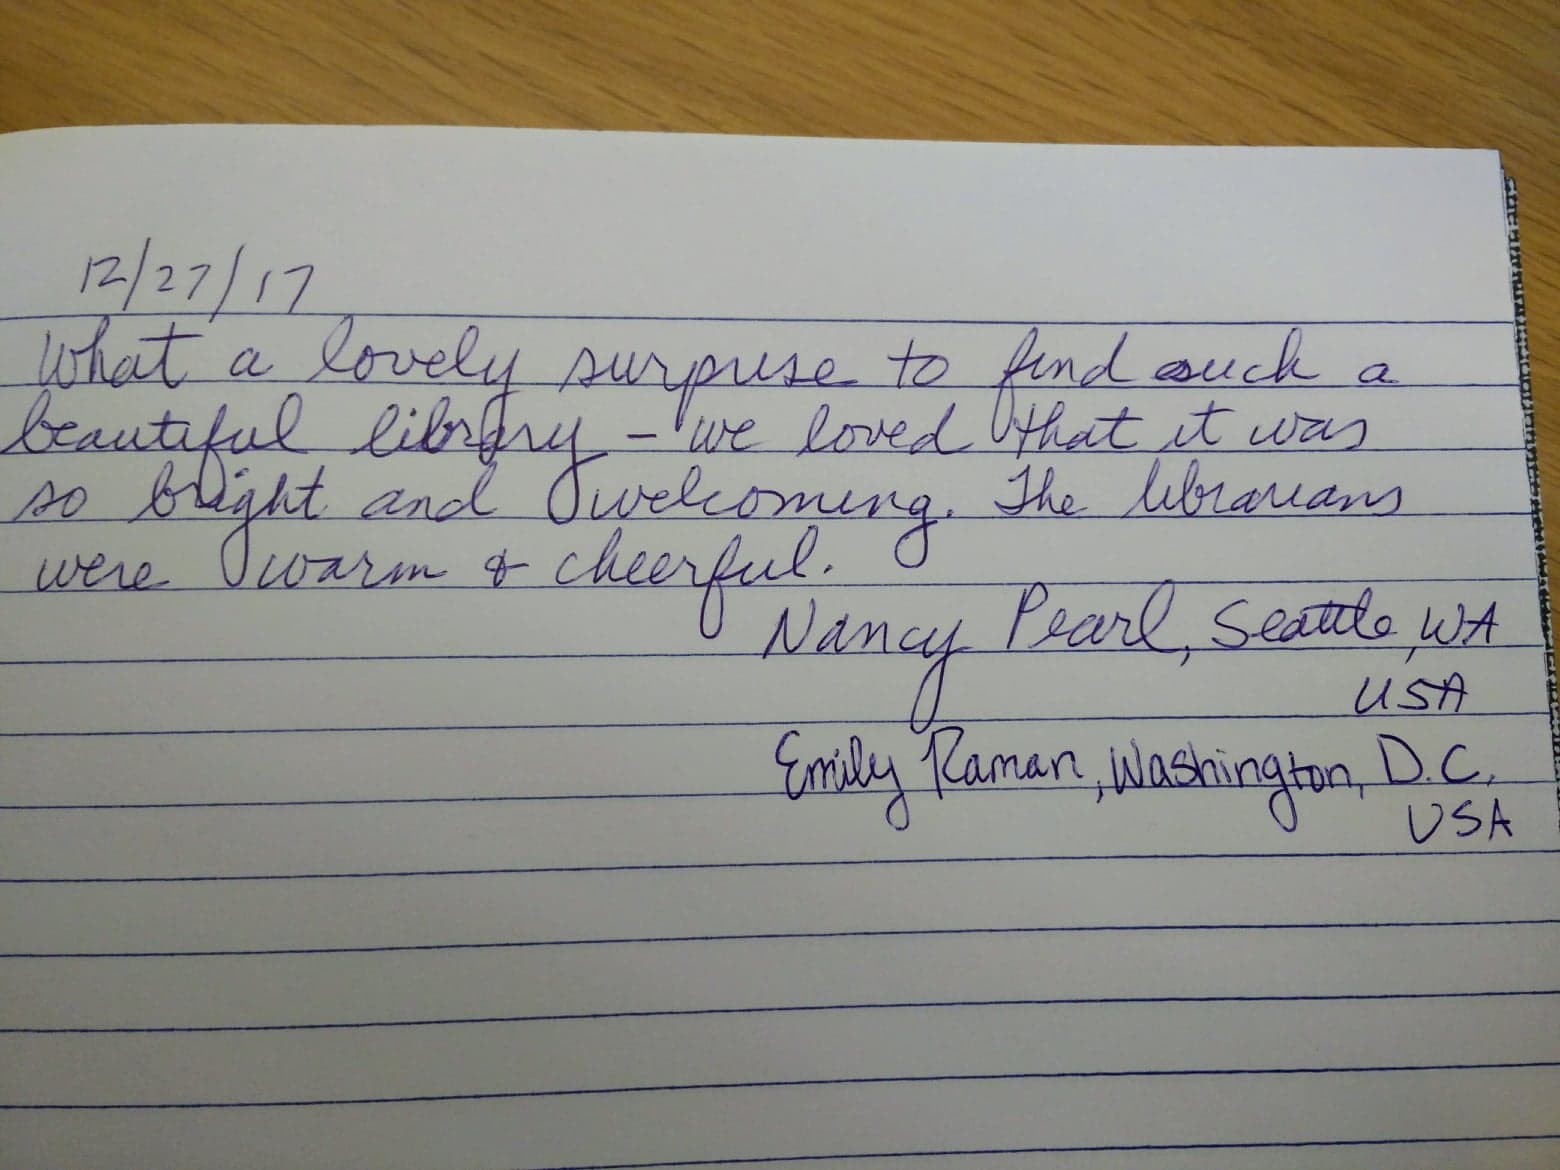 12/27/17
What a lovely surprise to find such a
beautiful library - we loved that it was
so bright and welcoming. The librarians
were warm & cheerful.
Nancy Pearl, Seattle, WA
USA
Emily Raman, Washington, D.C.
USA